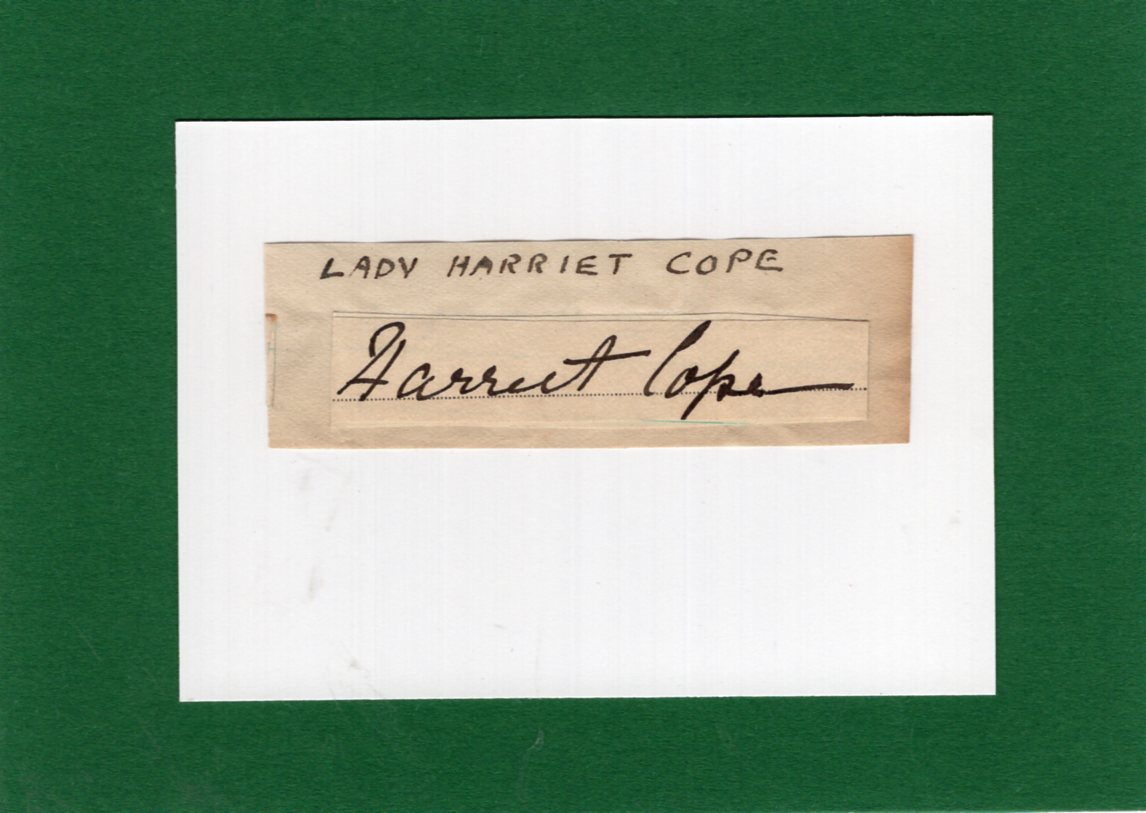 LADY HARRIET COPE
Harriet Cope